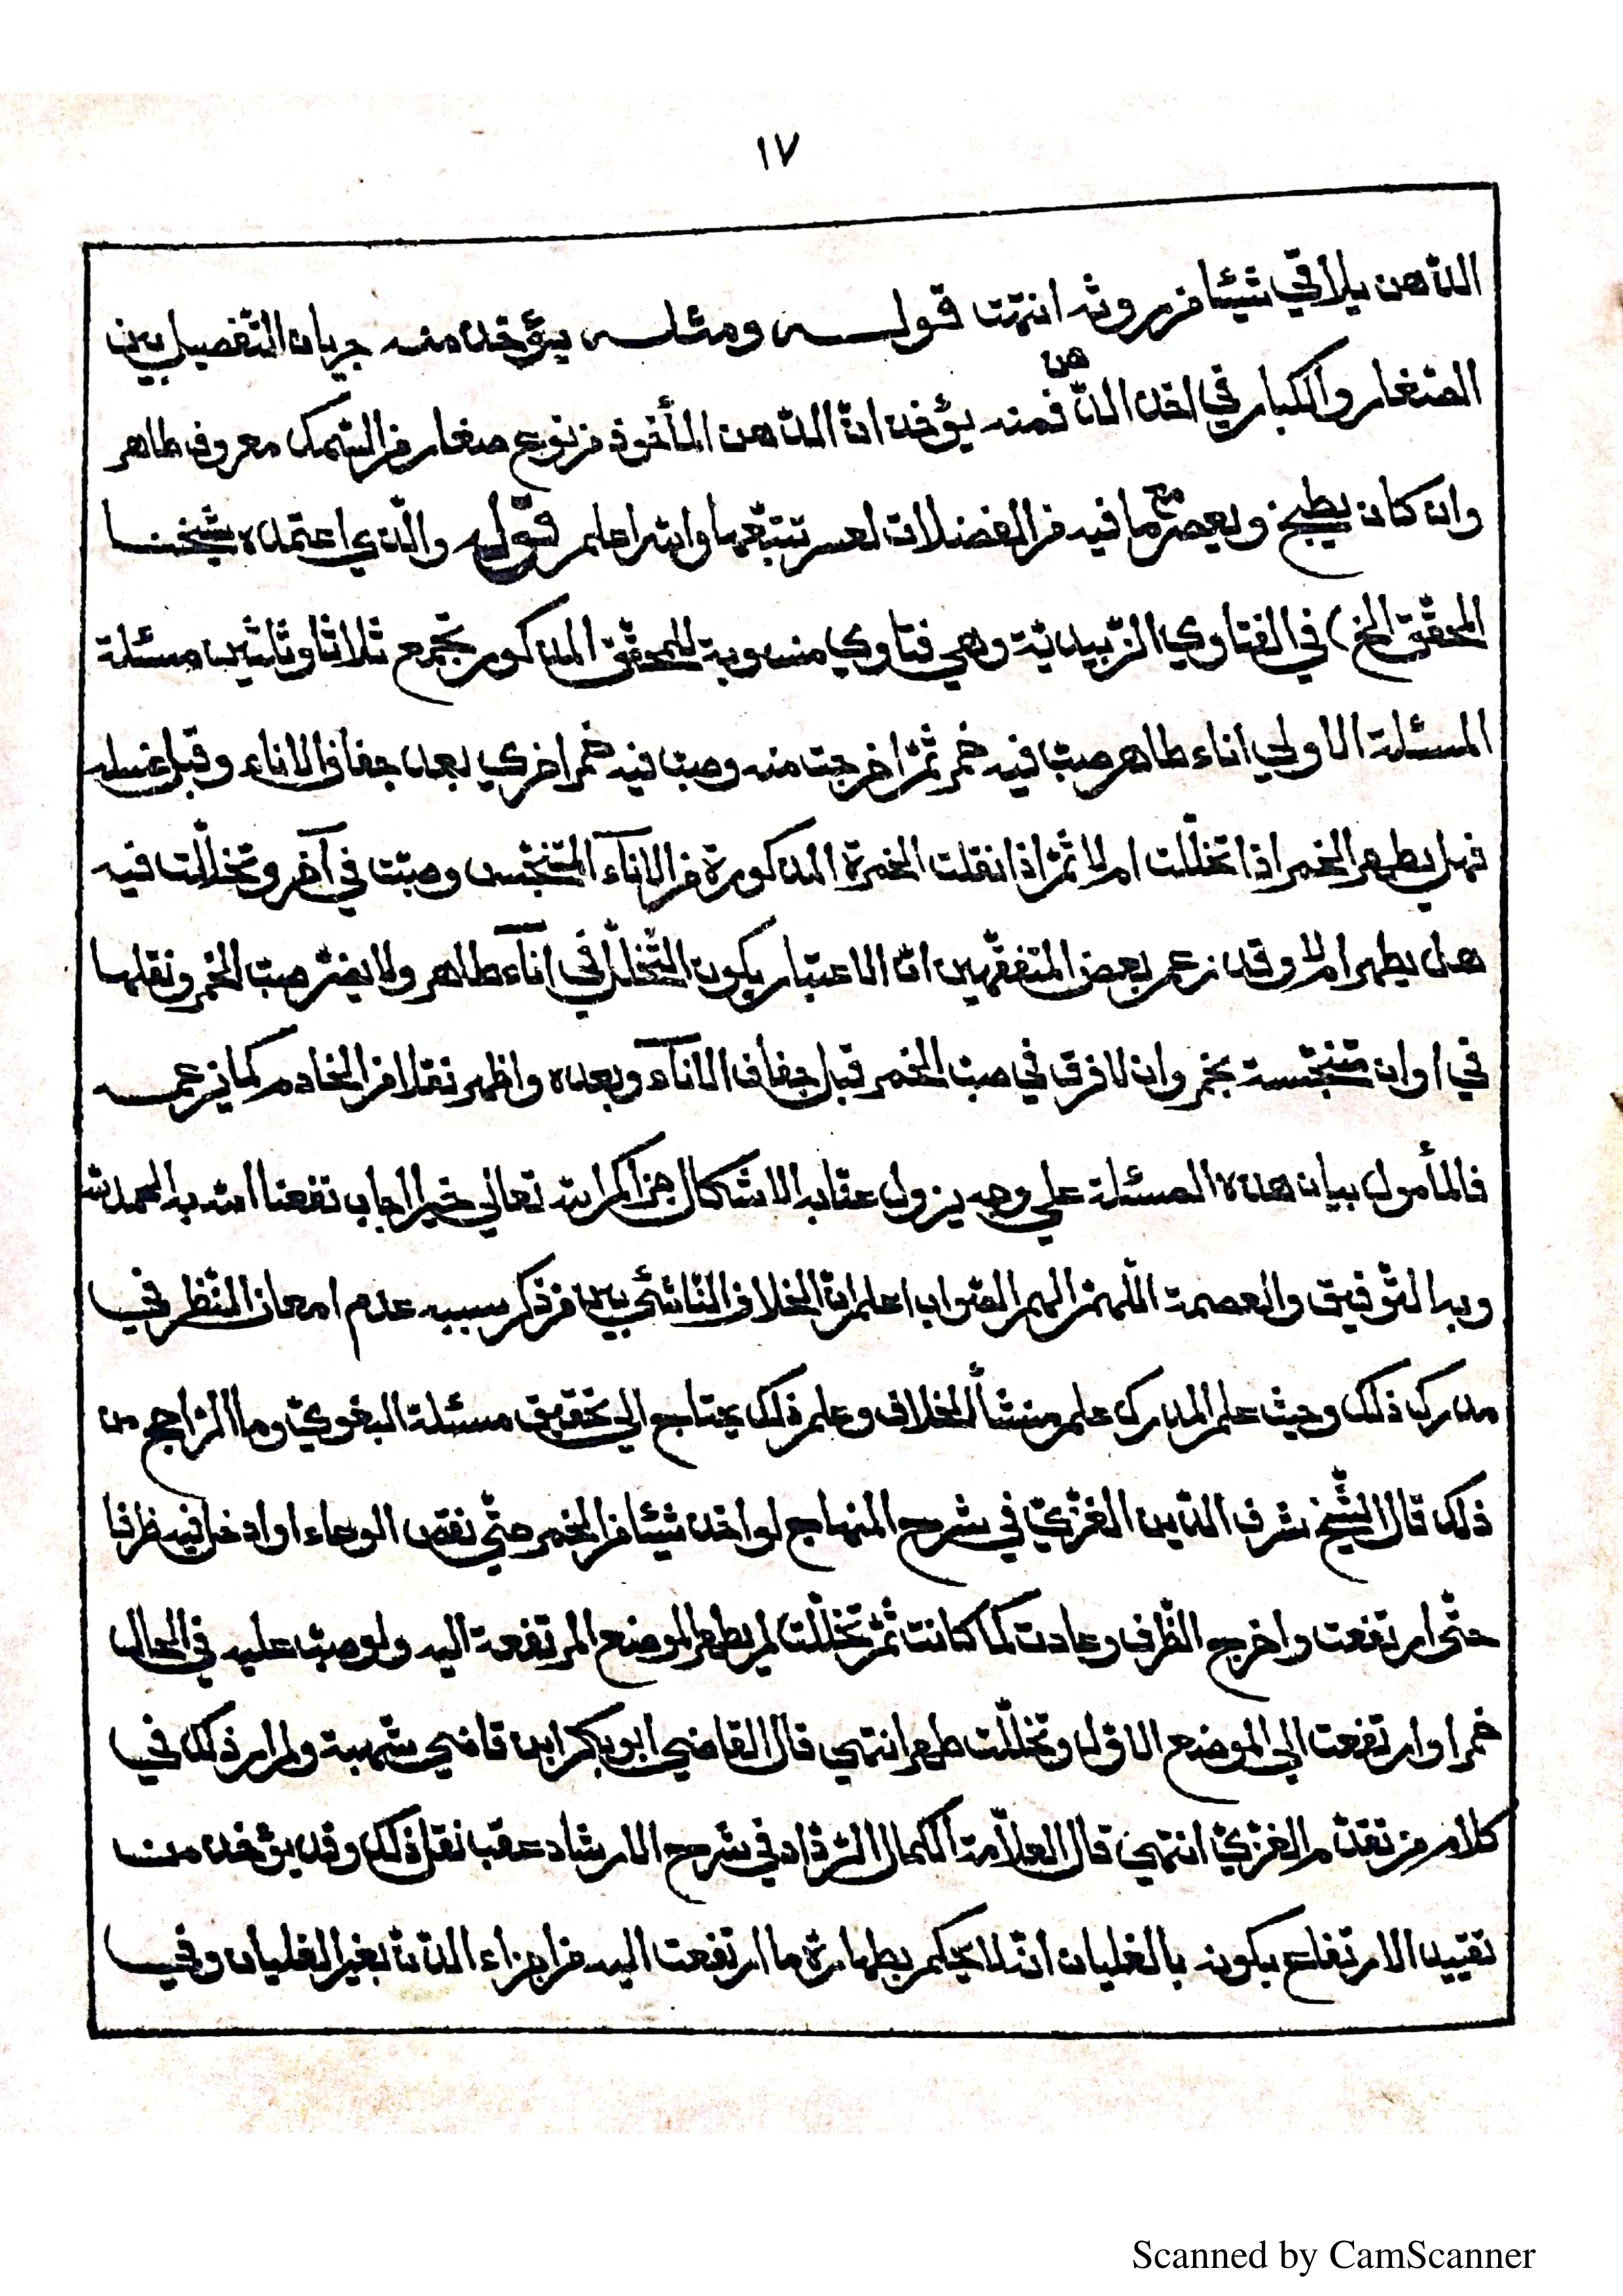 ١٧
الدّهن يلاقي شيئا من روثه انتهت قولـــه ومثلــه يؤخذ منــه جريان التّفصيل بين
الصّغار والكبار في اخذ الدّهن فمنه يؤخذ انّ الدّهن المأخوذ من نوع صغار من السّمك معروف طاهر
وان كان يطبخ ويعصر مع ما فيه من الفضلات لعسر تتبّعها والله اعلم قوله والّذي اعتمده شيخنــا
المحقّق الخ) في الفتاوي الزّبيديّة وهي فتاوي منسوبة للمحقّق المذكور تجمع ثلاثا وثلثين مسئلة
المسئلة الاولي اناء طاهر صبّ فيه خمر ثمّ اخرجت منه وصبّ فيه خمر اخري بعد جفاف الاناء وقبل غسله
فهل يطهر الخمر اذا تخلّلت ام لا ثمّ اذا نقلت الخمرة المذكورة من الاناء المتنجّس وصبّت في آخر وتخلّلت فيه
هل يطهر ام لا وقد زعم بعض المتفقّهين انّ الاعتبار بكون التّخلّل في اناء طاهر ولا يضرّ صبّ الخمر ونقلها
في اوان متنجّسة بخمر وان لا فرق في صبّ الخمر قبل جفاف الاناء وبعده واظهر نقلا من الخادم كما زعمــه
فالمأمول بيان هذه المسئلة علي وجه يزول عقابه الاشكال جزاكم الله تعالي خير اجاب نفعنا الله به الحمد لله
وبه التّوفيق والعصمة اللّهمّ الهم الصّواب اعلم انّ الخلاف النّاشئ بين من ذكر سببه عدم امعان النّظر في
مدرك ذلك وحيث علم المدرك علم منشأ الخلاف وعلم ذلك يحتاج الي تحقيق مسئلة البغويّ وما الرّاجح من
ذلك قال الشّيخ شرف الدّين الغزّيّ في شرح المنهاج لو اخذ شيئا من الخمر حتّي نقص الوعاء او ادخل فيه ظرفا
حتّي ارتفعت واخرج الظّرف وعادت كما كانت ثمّ تخلّلت لم يطهر الموضع المرتفعة اليه ولو صبّ عليه في الحال
خمر او ارتفعت الي الموضع الاوّل وتخلّلت طهر انتهي قال القاضي ابو بكر ابن قاضي شهبة ولم ار ذلك في
كلام من تقدّم الغزّيّ انتهي قال العلّامة الكمال الرّدّاد في شرح الارشاد عقب نقل ذلك وقد يؤخذ مــن
تقييد الارتفاع بكونه بالغليان انّه لا يحكم بطهارة ما ارتفعت اليه من اجزاء الدّنّ بغير الغليان وفي
Scanned by CamScanner